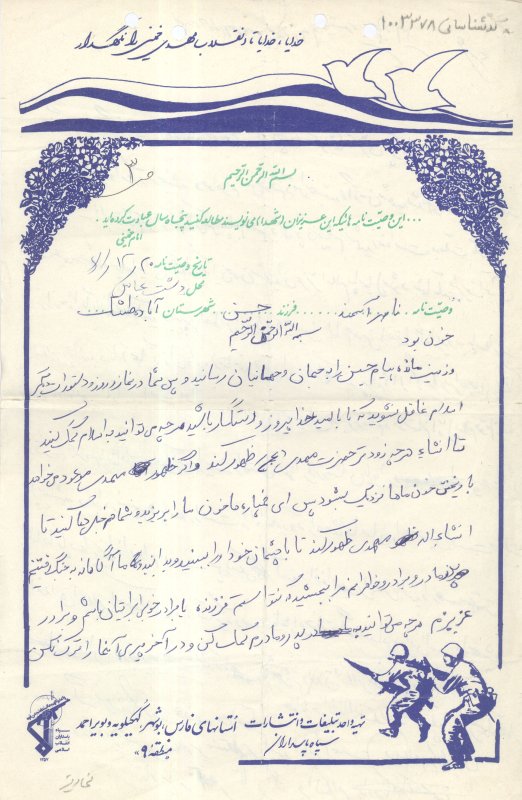 کد شناسایی ۱۰۰۳۳۷۸
خدایا، خدایا تا انقلاب مهدی خمینی را نگهدار
ص ۳
بسم الله الرحمن الرحیم
...این وصیت نامه هائیکه این عزیزان (شهدا) می نویسند مطالعه کنید پنجاه سال عبادت کرده اید.
امام خمینی
تاریخ وصیت نامه ۲۰/۱۲/
محل دشت عباس
وصیت نامه .. ناصر ...... فرزند حسین ...... شهرستان آباده طشک ...
بسم الله الرحمن الرحیم
خون بود
و زینب پیام حسین را به جهان و جهانیان رسانید و پس شما در نماز و روزه و دستورات دیگر
اسلام غافل نشوید که تا بالید خدا پیروز و رستگار باشید هر چه می توانید به اسلام کمک کنید
تا انشاء هر چه زودتر حضرت مهدی (عج) ظهور کند و اگر ظهور مهدی موعود می خواهد
با ریختن خون ماها نزدیک بشود پس ای خمپاره ها خون ما را بریزید و شما هم خیلی دعا کنید تا
انشاءاله مهدی ظهور کند تا با چشمان خود او را ببینید و بدانید ما آگاهانه به جنگ رفتیم
پدر و مادر و برادر و خواهرانم مرا ببخشید که نتوانستم فرزند یا برادر خوبی برایتان باشم و برادر
عزیزم هر چه می توانید به پدر و مادرم کمک کن و در آخر پیری آنها را ترک نکن
تهیه واحد تبلیغات و انتشارات استانهای فارس، بوشهر، کهگیلویه و بویراحمد
سپاه پاسداران
منطقه «۹»
سپاه
پاسداران
انقلاب
اسلامی